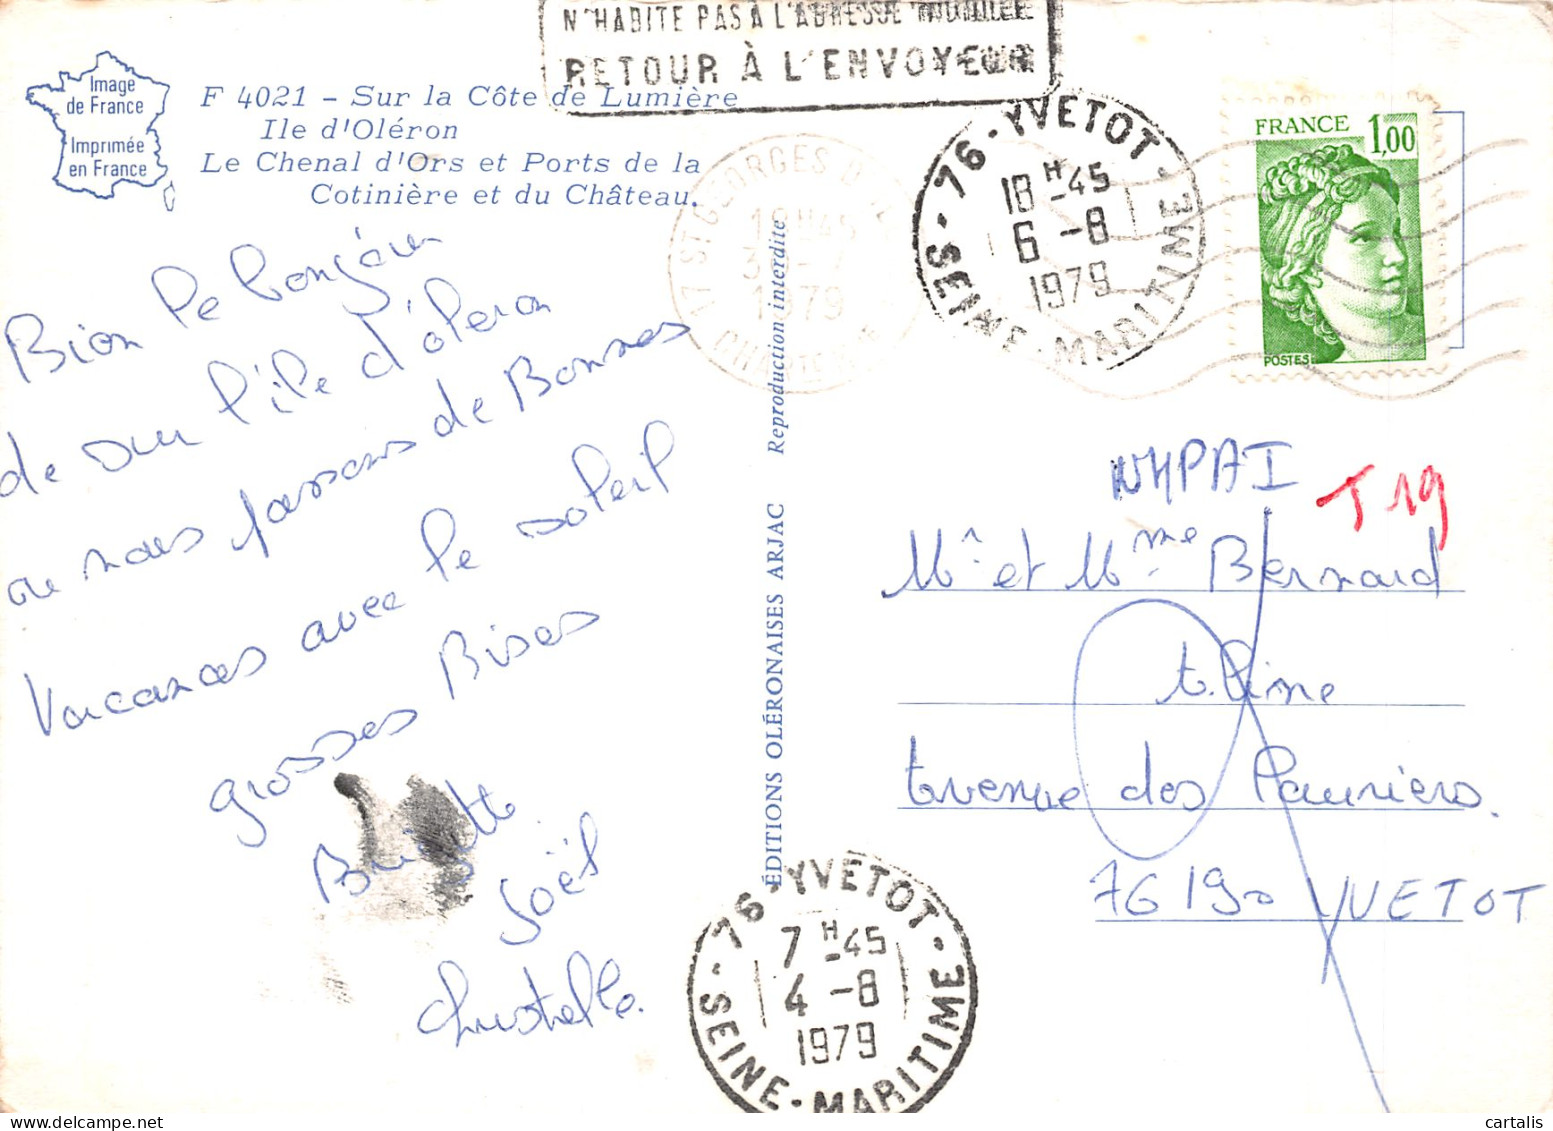 N'HABITE PAS À L'ADRESSE INDIQUÉE
RETOUR À L'ENVOYEUR
Image
de France
Imprimée
en France
F 4021 - Sur la Côte de Lumière
Ile d'Oléron
Le Chenal d'Ors et Ports de la
Cotinière et du Château.
17 ST GEORGES D'
1979
76 - YVETOT - SEINE-MARITIME
18 H-45
6 -8
1979
FRANCE 1,00
POSTES
Bien le bonjour
de sur l'île d'óleron
ou nous passons de Bonnes
Vacances avec le soleil
grosses Bises
Joël
Christelle.
Reproduction interdite
ÉDITIONS OLÉRONAISES ARJAC
NHPAI
T 19
Mr et Mme Bernard
Avenue des Lauriers.
76190 YVETOT
76 - YVETOT - SEINE-MARITIME
7 H-45
4 -8
1979
© cartalis